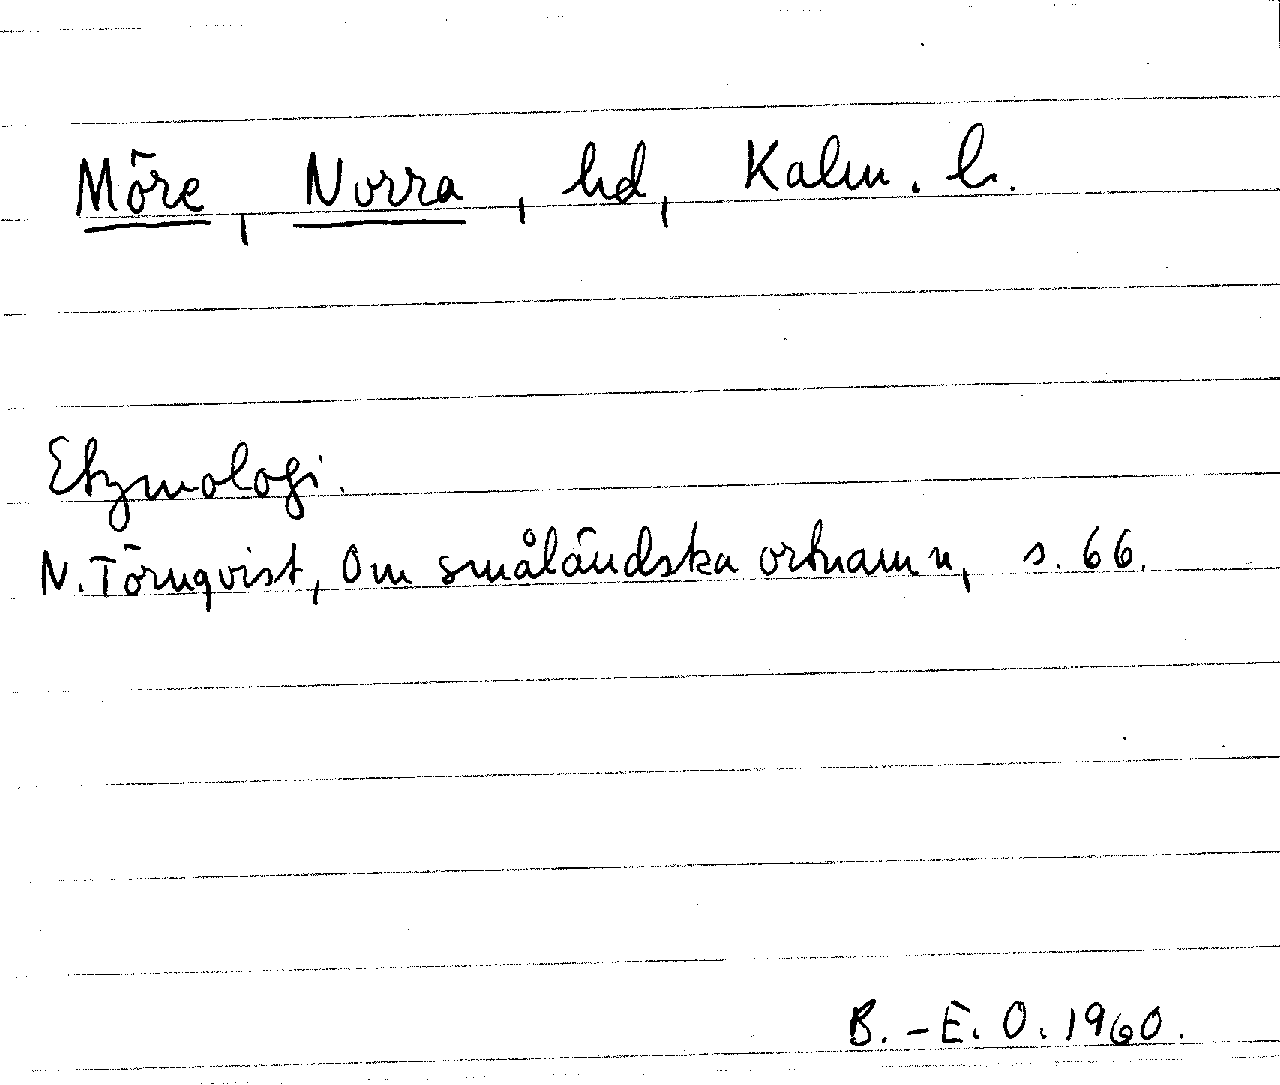 Möre, Norra, hd, Kalm. l.
Etymologi.
N. Törnqvist, Om småländska ortnamn, s. 66.
B.-E. O. 1960.